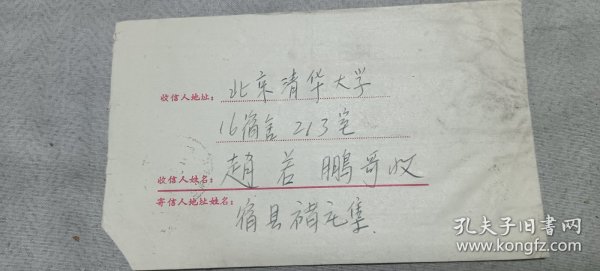 收信人地址：北京清华大学
16宿舍213室
收信人姓名：趙若鹏哥收
寄信人地址姓名：宿县褚元集
孔夫子旧书网
www.kongfz.com